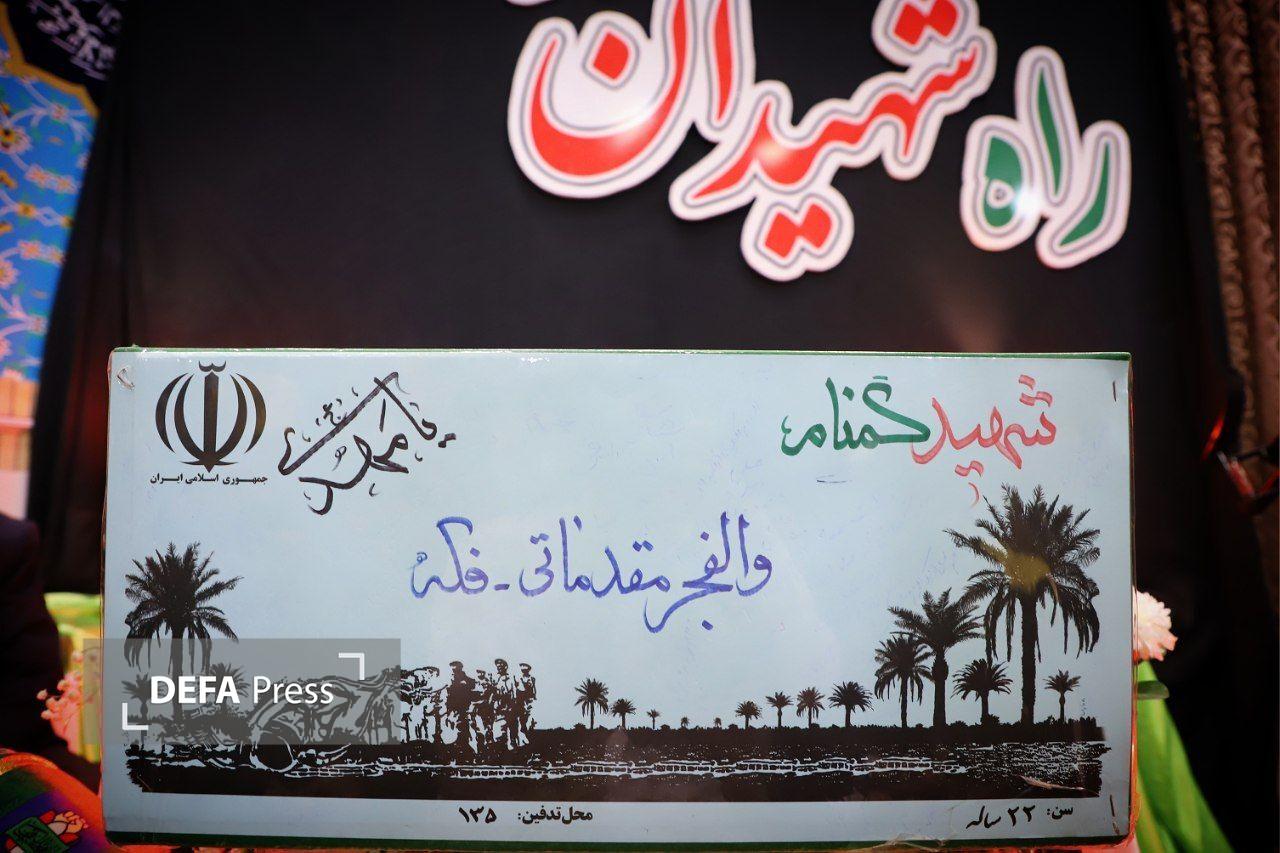 راه شهیدان
شهید گمنام
یا مهدی
جمهوری اسلامی ایران
والفجر مقدماتی - فکه
DEFA Press
سن: ۲۲ ساله
محل تدفین: ۱۳۵